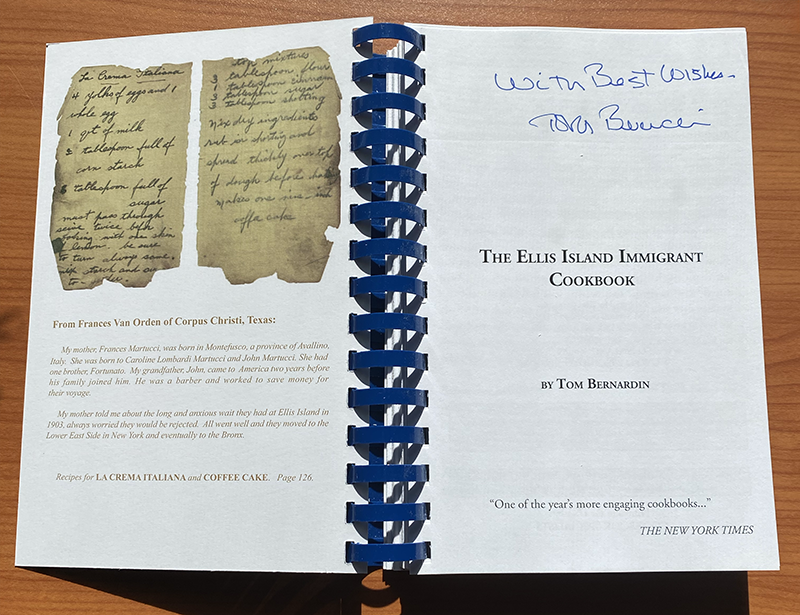 La Crema Italiana
4 yolks of eggs and 1
whole egg
1 qt of milk
2 tablespoon full of
corn starch
8 tablespoon full of
sugar
must pass through
seive twice befo
cooking with one skin
of lemon. be sure
to turn always same.
mix starch and
top mixtures
3 tablespoon flour
tablespoon cinnamon
3 tablespoon sugar
3 tablespoon shotting
mix dry ingredients
rub in shorting and
spread thickly over top
of dough before bake
makes one nine-inch
offe cake
From Frances Van Orden of Corpus Christi, Texas:
My mother, Frances Martucci, was born in Montefusco, a province of Avallino,
Italy. She was born to Caroline Lombardi Martucci and John Martucci. She had
one brother, Fortunato. My grandfather, John, came to America two years before
his family joined him. He was a barber and worked to save money for
their voyage.
My mother told me about the long and anxious wait they had at Ellis Island in
1903, always worried they would be rejected. All went well and they moved to the
Lower East Side in New York and eventually to the Bronx.
Recipes for LA CREMA ITALIANA and COFFEE CAKE. Page 126.
With Best Wishes-
Tom
THE ELLIS ISLAND IMMIGRANT
COOKBOOK
BY TOM BERNARDIN
“One of the year’s more engaging cookbooks...”
THE NEW YORK TIMES